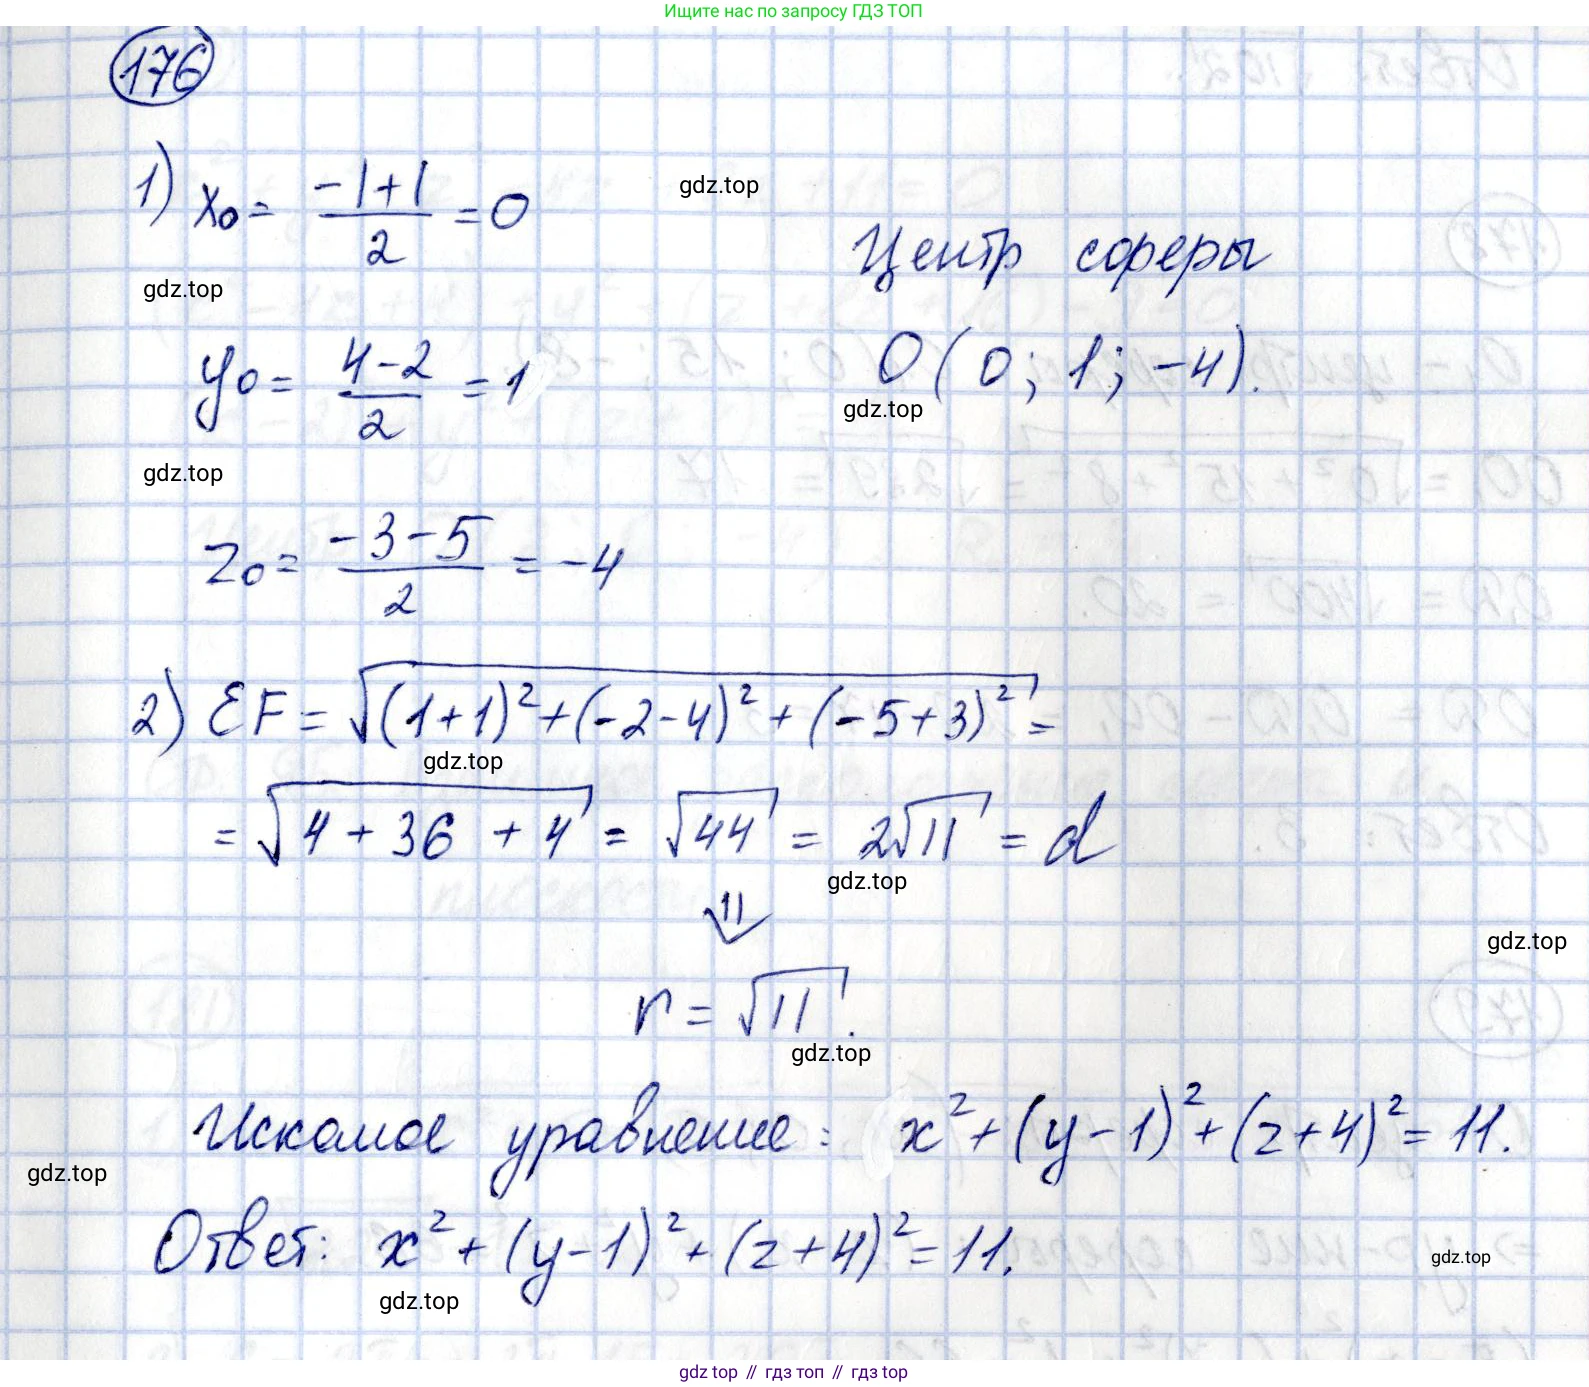 Ищите нас по запросу ГДЗ ТОП
176
1) x₀ = (-1+1)/2 = 0
gdz.top
Центр сферы
gdz.top
y₀ = (4-2)/2 = 1
O(0; 1; -4).
gdz.top
gdz.top
z₀ = (-3-5)/2 = -4
2) EF = √((1+1)² + (-2-4)² + (-5+3)²) =
gdz.top
= √(4 + 36 + 4) = √44 = 2√11 = d
gdz.top
⇓
gdz.top
r = √11.
gdz.top
Искомое уравнение: x² + (y-1)² + (z+4)² = 11.
gdz.top
Ответ: x² + (y-1)² + (z+4)² = 11.
gdz.top
gdz.top
gdz top // гдз топ // гдз top